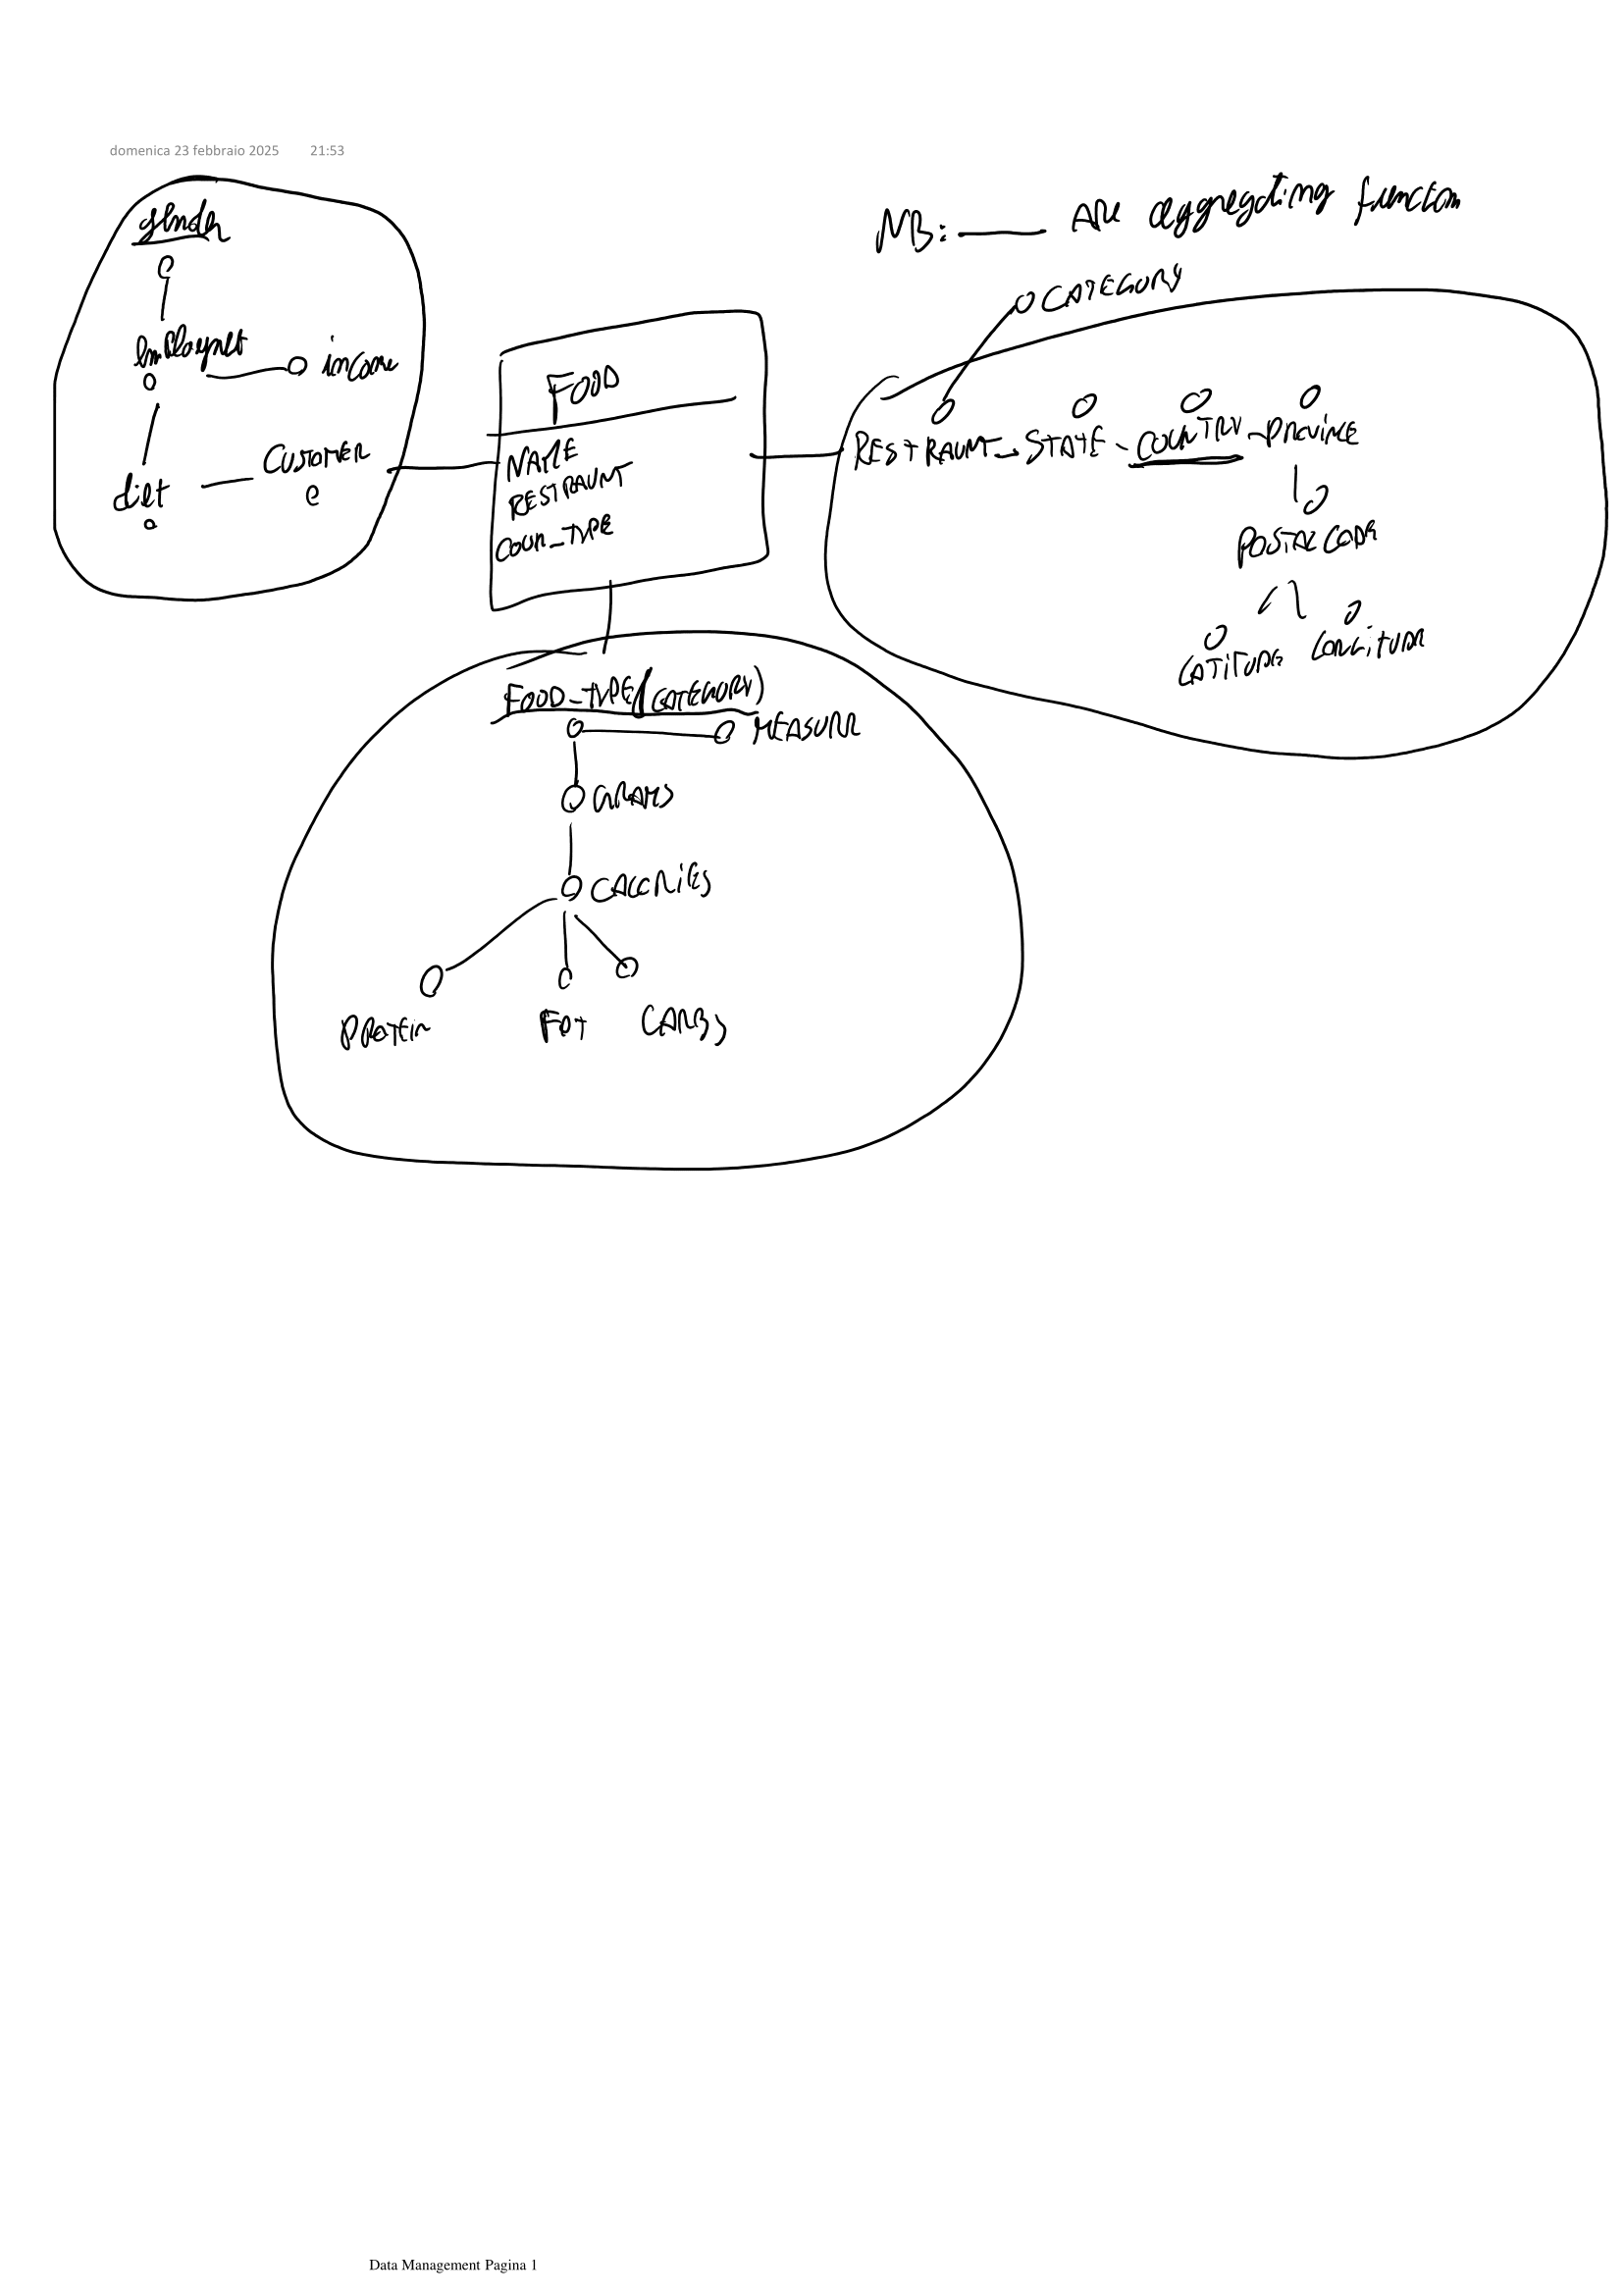 domenica 23 febbraio 2025 21:53
gender
NB: ____ ARE aggregating function
CATEGORY
income
FOOD
CUSTOMER
diet
NAME
RESTRAUNT
COUN_TYPE
RESTRAUNT - STATE - COUNTRY - PROVINCE
POSTAL CODE
LATITUDE LONGITUDE
FOOD_TYPE (CATEGORY)
MEASURE
GRAMS
CALORIES
PROTEIN FAT CARBS
Data Management Pagina 1